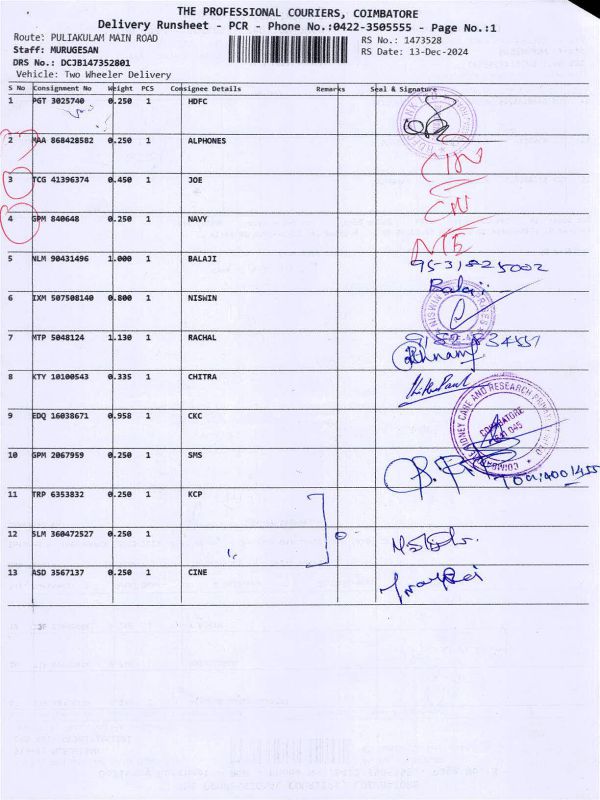 THE PROFESSIONAL COURIERS, COIMBATORE
Delivery Runsheet - PCR - Phone No.:0422-3505555 - Page No.:1
Route: PULIAKULAM MAIN ROAD
RS No.: 1473528
Staff: MURUGESAN
RS Date: 13-Dec-2024
DRS No.: DCJB147352801
Vehicle: Two Wheeler Delivery
S No Consignment No Weight PCS Consignee Details Remarks Seal & Signature
1 PGT 3025740 0.250 1 HDFC
2 MAA 868428582 0.250 1 ALPHONES
3 TCG 41396374 0.450 1 JOE
4 GPM 840648 0.250 1 NAVY
5 NLM 90431496 1.000 1 BALAJI
Balaji
6 IXM 507508140 0.800 1 NISWIN
7 MTP 5048124 1.130 1 RACHAL
8 KTY 10100543 0.335 1 CHITRA
9 EDQ 16038671 0.958 1 CKC
COIMBATORE
10 GPM 2067959 0.250 1 SMS
11 TRP 6353832 0.250 1 KCP
12 SLM 360472527 0.250 1
13 ASD 3567137 0.250 1 CINE